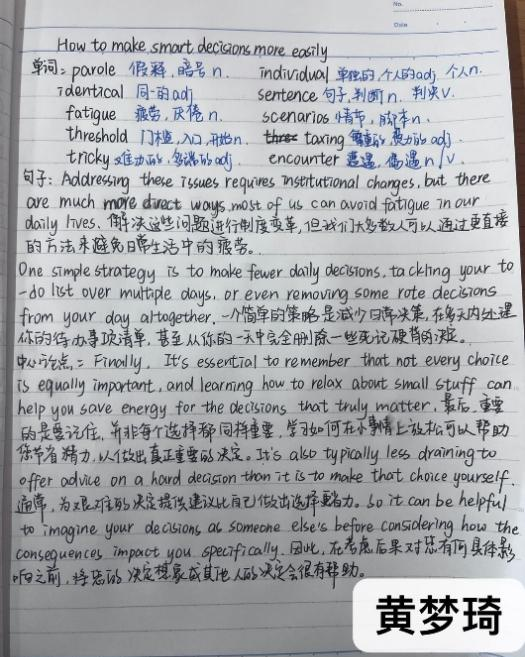 No.
Date
How to make smart decisions more easily
单词: parole 假释,暗号n. individual 单独的,个人的adj 个人n.
identical 同一的adj sentence 句子,判断n. 判决v.
fatigue 疲劳,厌倦n. scenarios 情节,脚本n.
threshold 门槛,入口,开始n. taxing 繁重的,费力的adj.
tricky 难办的, adj. encounter 遭遇,偶遇n/v.
句子: Addressing these issues requires institutional changes, but there
are much more direct ways most of us can avoid fatigue in our
daily lives. 解决这些问题进行制度变革,但我们大多数人可以通过更直接
的方法来避免日常生活中的疲劳.
One simple strategy is to make fewer daily decisions, tackling your to
-do list over multiple days, or even removing some rote decisions
from your day altogether. 一个简单的策略是减少日常决策,在多天内处理
你的待办事项清单,甚至从你的一天中完全删除一些死记硬背的决定。
中心论点: Finally, It's essential to remember that not every choice
is equally important, and learning how to relax about small stuff can
help you save energy for the decisions that truly matter. 最后,重要
的是要记住,并非每个选择都同样重要,学习如何在小事情上放松可以帮助
您节省精力,以做出真正重要的决定。It's also typically less draining to
offer advice on a hard decision than it is to make that choice yourself.
通常,为艰难的决定提供建议比自己做出选择更省力。So it can be helpful
to imagine your decisions as someone else's before considering how the
consequences impact you specifically. 因此,在考虑后果对您有何具体影
响之前,将您的决定想象成其他人的决定会很有帮助。
黄梦琦